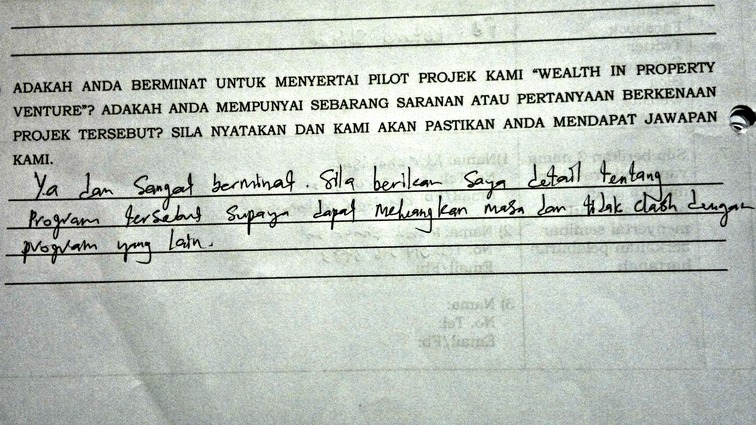 ADAKAH ANDA BERMINAT UNTUK MENYERTAI PILOT PROJEK KAMI "WEALTH IN PROPERTY
VENTURE"? ADAKAH ANDA MEMPUNYAI SEBARANG SARANAN ATAU PERTANYAAN BERKENAAN
PROJEK TERSEBUT? SILA NYATAKAN DAN KAMI AKAN PASTIKAN ANDA MENDAPAT JAWAPAN
KAMI.
Ya dan Sangat berminat. Sila berikan saya detail tentang
program tersebut supaya dapat meluangkan masa dan tidak clash dengan
program yang lain.